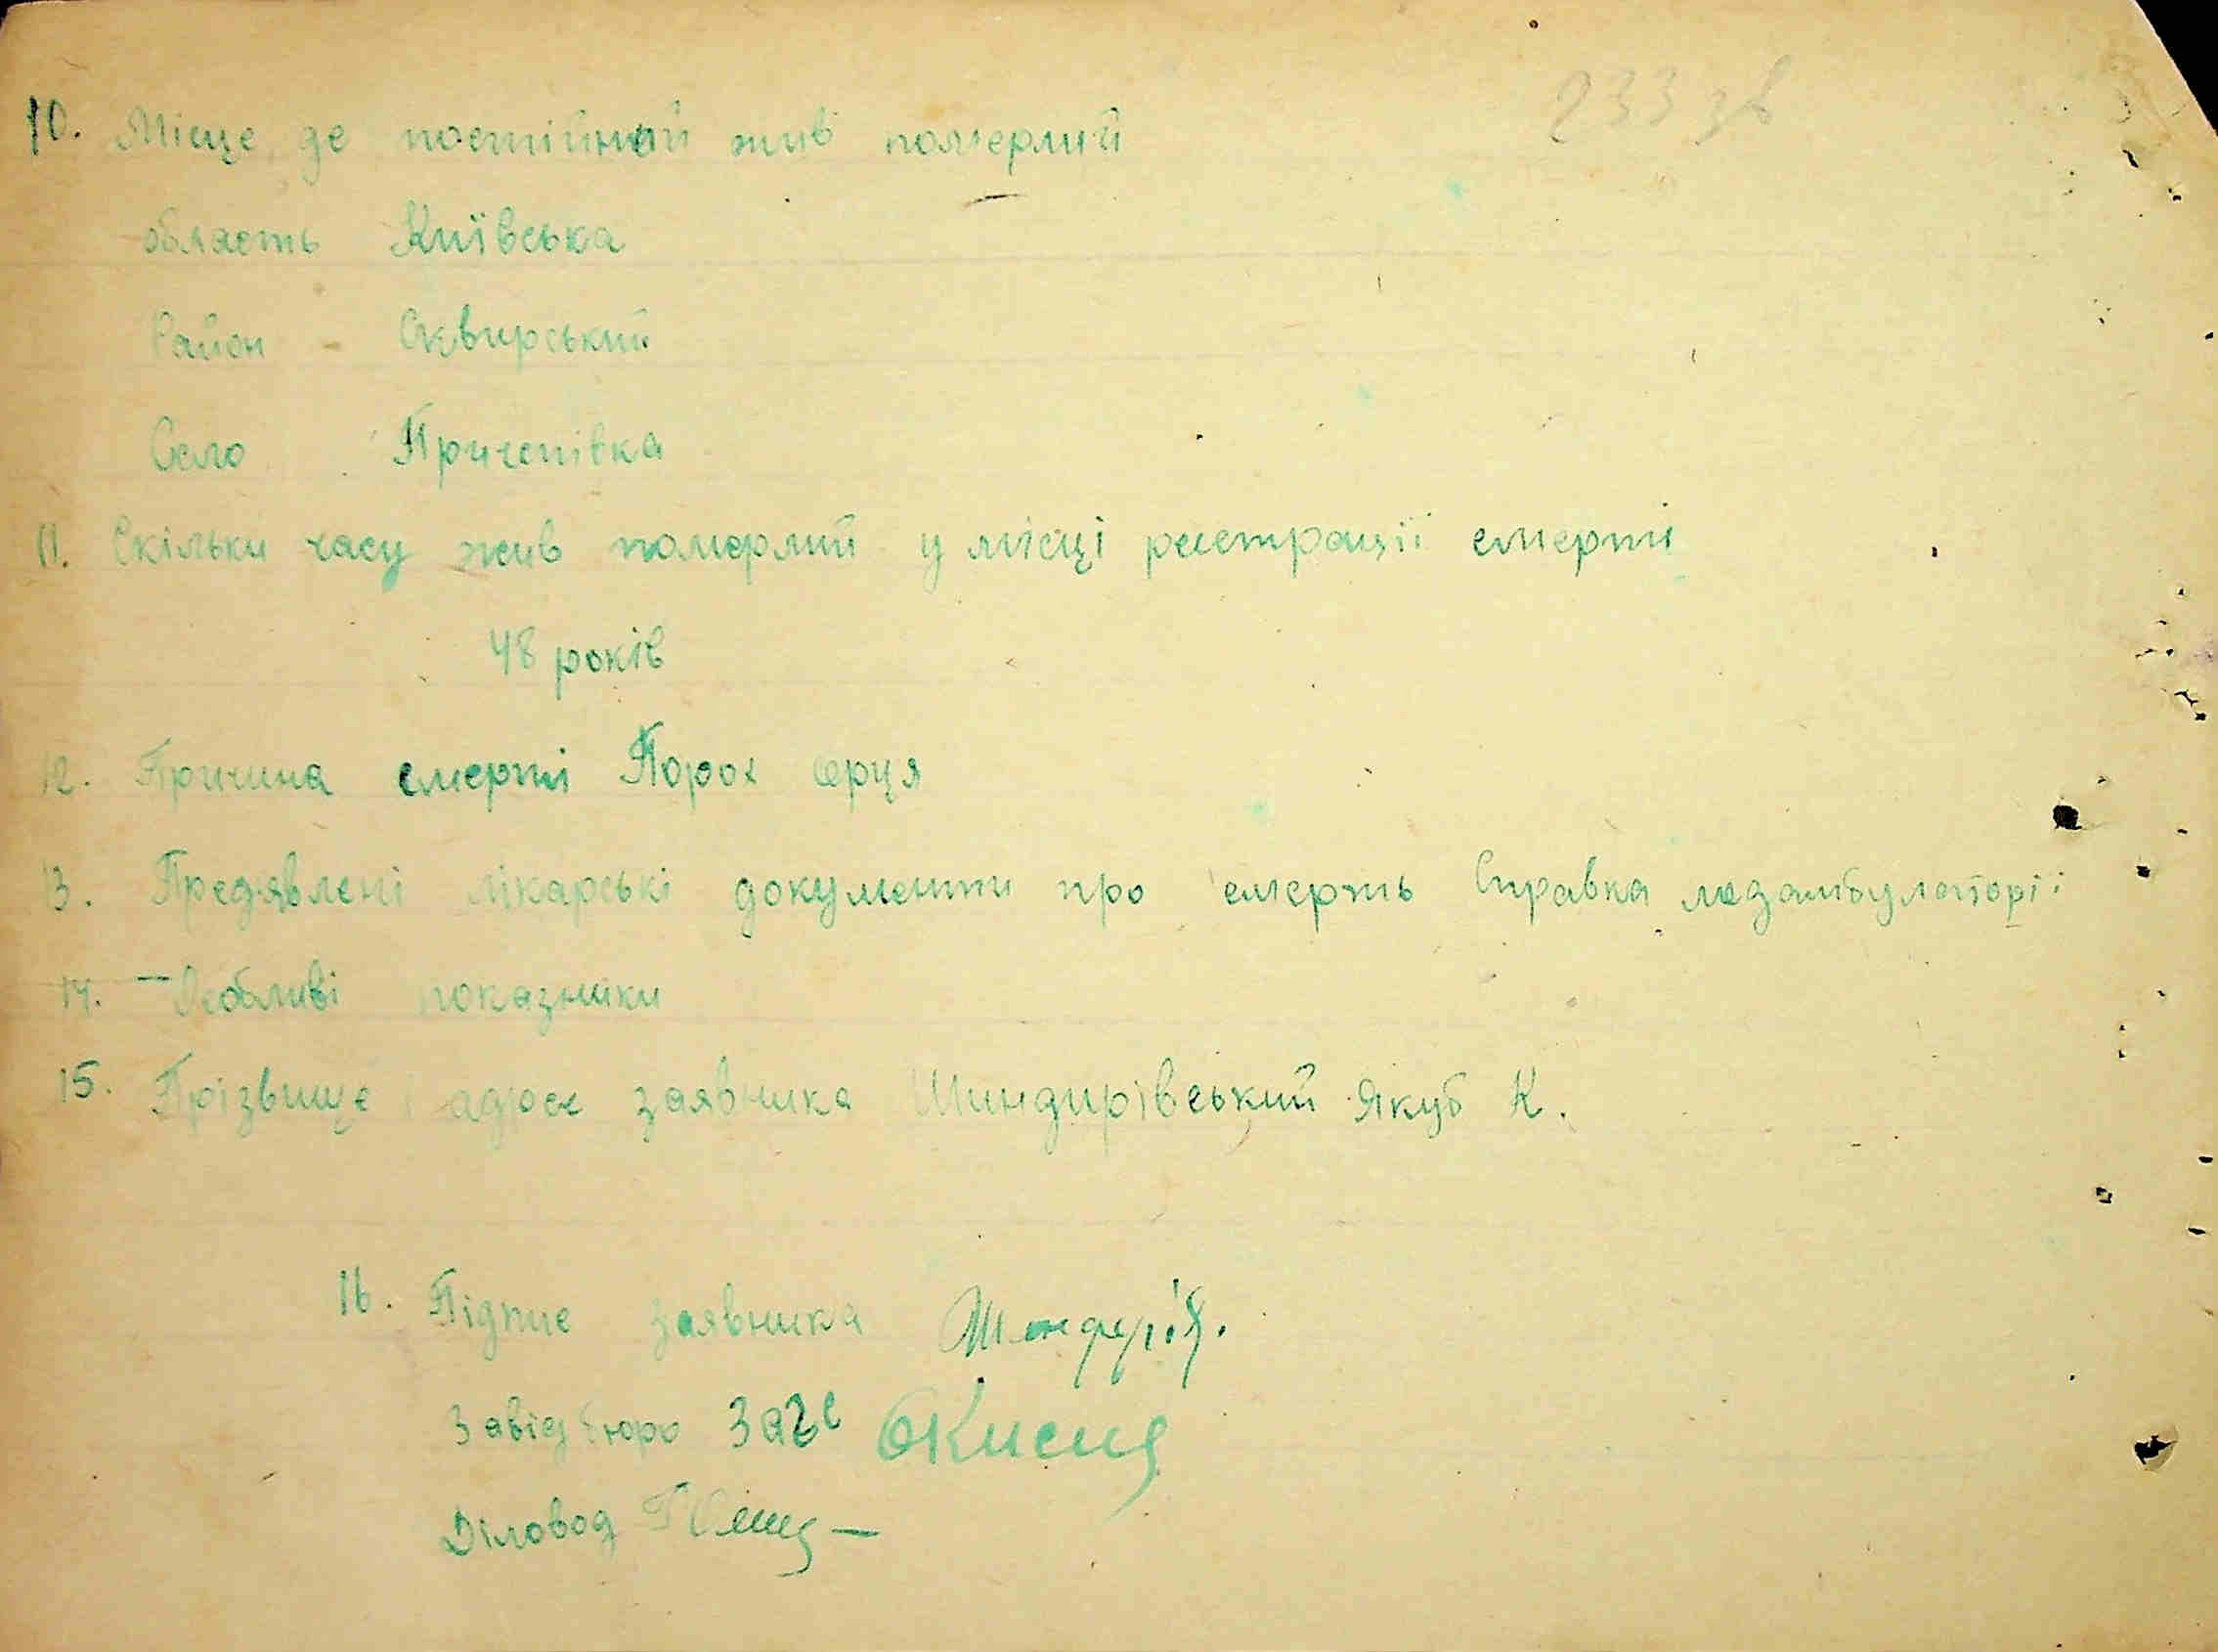 233 зв
10. Місце де постійний жив померлий
область Київська
Район - Сквирський
Село Причепівка
11. Скільки часу жив померлий у місці реєстрації смерті
48 років
12. Причина смерті Порок серця
13. Предявлені лікарські документи про смерть Справка медамбулаторії
14. - Особливі показники
15. Прізвище і адрес заявника Шиндирівський Якуб К.
16. Підпис заявника
Завід бюро Загс
Діловод